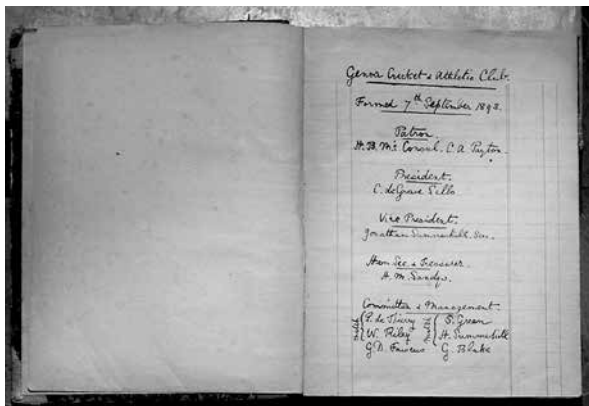 Genoa Cricket & Athletic Club.
Formed 7th September 1893.
Patron.
H.B.M's Consul. C. A. Payton.
President.
C. de Grave Sells
Vice President.
Jonathan Summerhill. Sen.
Hon Sec & Treasurer.
H. M. Sandys.
Committee & Management.
P. de Thierry S. Green
W. Riley H. Summerhill
G. D. Fawcus G. Blake